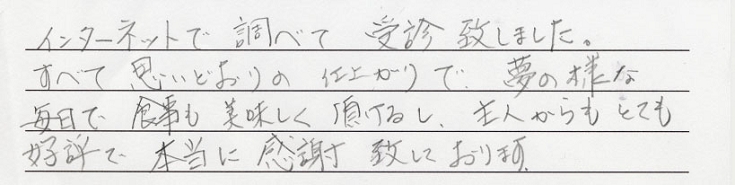 インターネットで 調べて 受診 致しました。
すべて 思いどおりの 仕上がりで、夢の様な
毎日で 食事も 美味しく 頂けるし、主人からも とても
好評で 本当に 感謝 致して おります。